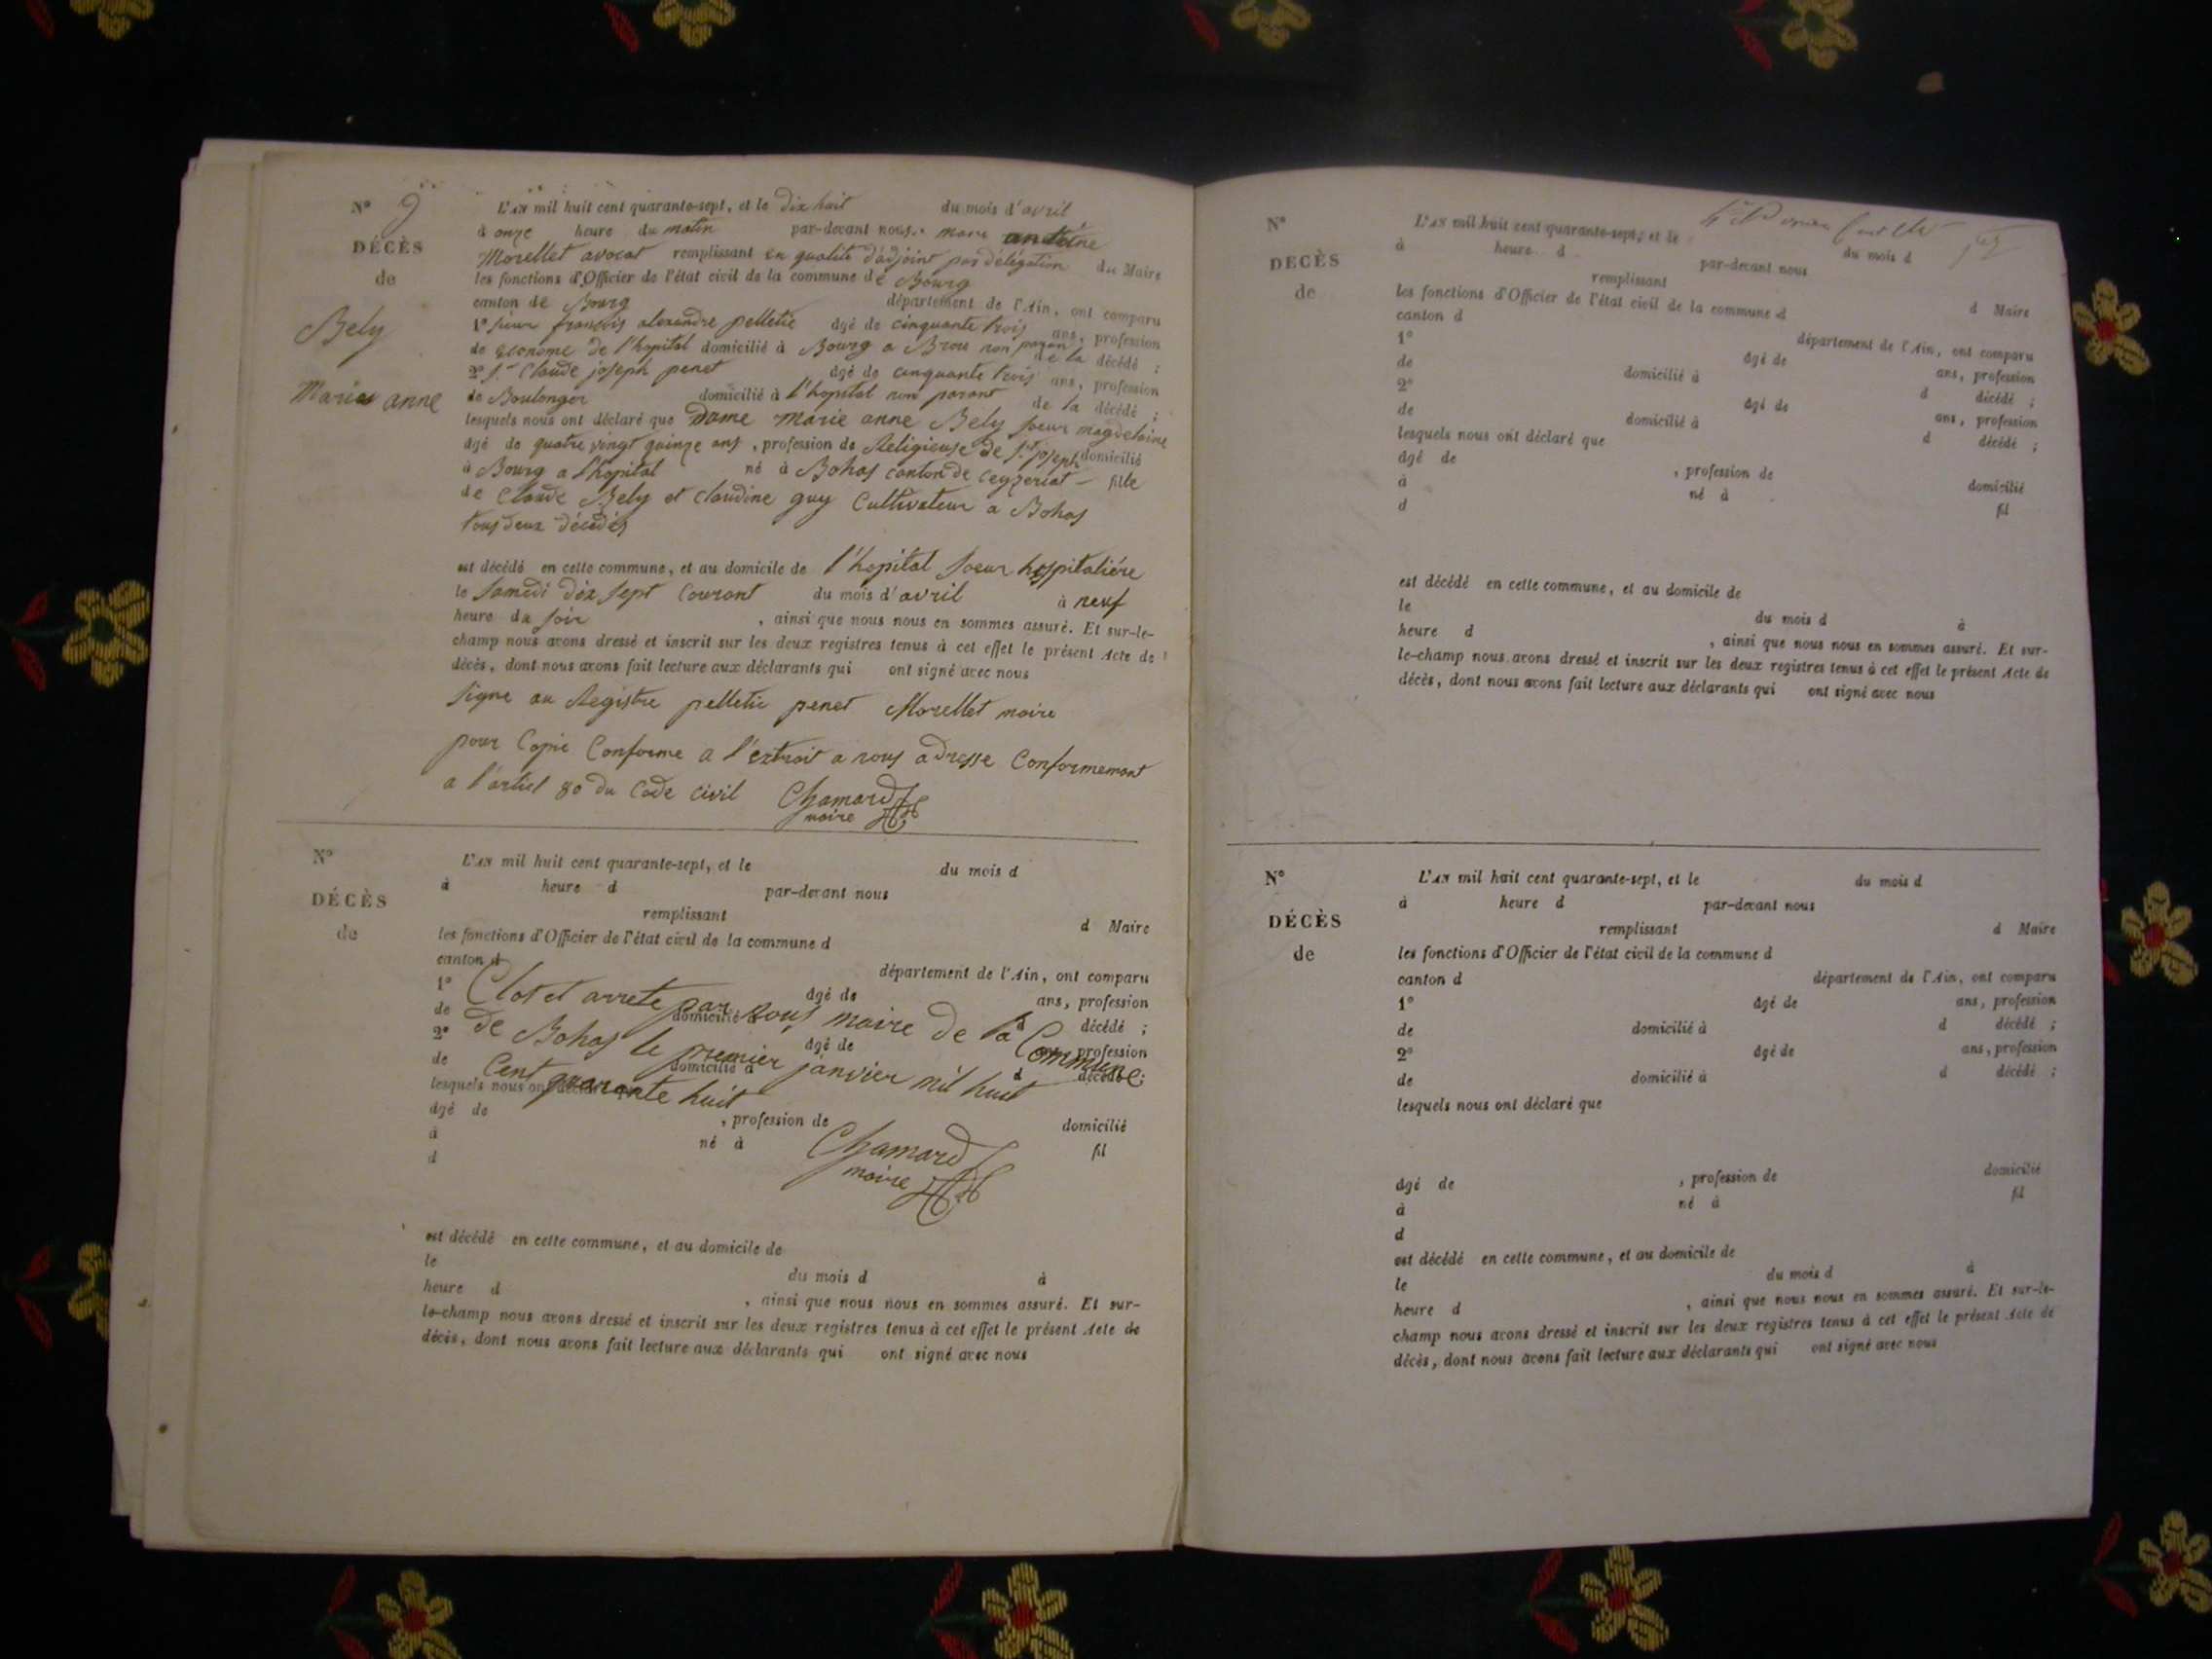 N° 9
DÉCÈS
de
Bely
Marie anne
L'AN mil huit cent quarante-sept, et le Dix huit du mois d'avril
à onze heure du matin par-devant nous marie antoine
Morellet avocat remplissant en qualité d'adjoint par délégation du Maire
les fonctions d'Officier de l'état civil de la commune de Bourg
canton de Bourg département de l'Ain, ont comparu
1° sieur françois alexandre pelletie âgé de cinquante trois ans, profession
de econome de l'hopital domicilié à Bourg a Brou non parant de la décédé ;
2° Sr Claude joseph penet âgé de cinquante trois ans, profession
de Boulanger domicilié à l'hopital non parant de la décédé ;
lesquels nous ont déclaré que Dame marie anne Bely soeur magdelaine
âgé de quatre vingt quinze ans, profession de Religieuse de St joseph domicilié
à Bourg a l'hopital né à Bohas canton de ceyzeriat fille
de Claude Bely et claudine guy Cultivateur a Bohas
tous deux décédés
est décédé en cette commune, et au domicile de l'hopital soeur hospitalière
le Samedi dix sept Courant du mois d'avril à neuf
heure du soir , ainsi que nous nous en sommes assuré. Et sur-le-
champ nous avons dressé et inscrit sur les deux registres tenus à cet effet le présent Acte de
décès, dont nous avons fait lecture aux déclarants qui ont signé avec nous
signe au Registre pelletie penet Morellet maire
pour Copie Conforme a l'extrait a nous adresse Conformement
a l'articl 80 du Code civil Chamard
maire
N°
DÉCÈS
de
L'AN mil huit cent quarante-sept, et le du mois d
à heure d par-devant nous
remplissant d Maire
les fonctions d'Officier de l'état civil de la commune d
canton d département de l'Ain, ont comparu
1° âgé de ans, profession
de domicilié à d décédé ;
2° âgé de ans, profession
de domicilié à d décédé ;
lesquels nous ont déclaré que
Clos et arrete par nous maire de la Commune
de Bohas le premier janvier mil huit
Cent quarante huit
âgé de , profession de domicilié
à né à fil
d
Chamard
maire
est décédé en cette commune, et au domicile de
le du mois d à
heure d , ainsi que nous nous en sommes assuré. Et sur-
le-champ nous avons dressé et inscrit sur les deux registres tenus à cet effet le présent Acte de
décès, dont nous avons fait lecture aux déclarants qui ont signé avec nous
N°
DÉCÈS
de
L'AN mil huit cent quarante-sept, et le du mois d
à heure d par-devant nous
remplissant d Maire
les fonctions d'Officier de l'état civil de la commune d
canton d département de l'Ain, ont comparu
1° âgé de ans, profession
de domicilié à d décédé ;
2° âgé de ans, profession
de domicilié à d décédé ;
lesquels nous ont déclaré que
âgé de , profession de domicilié
à né à fil
d
est décédé en cette commune, et au domicile de
le du mois d à
heure d , ainsi que nous nous en sommes assuré. Et sur-
le-champ nous avons dressé et inscrit sur les deux registres tenus à cet effet le présent Acte de
décès, dont nous avons fait lecture aux déclarants qui ont signé avec nous
N°
DÉCÈS
de
L'AN mil huit cent quarante-sept, et le du mois d
à heure d par-devant nous
remplissant d Maire
les fonctions d'Officier de l'état civil de la commune d
canton d département de l'Ain, ont comparu
1° âgé de ans, profession
de domicilié à d décédé ;
2° âgé de ans, profession
de domicilié à d décédé ;
lesquels nous ont déclaré que
âgé de , profession de domicilié
à né à fil
d
est décédé en cette commune, et au domicile de
le du mois d à
heure d , ainsi que nous nous en sommes assuré. Et sur-le-
champ nous avons dressé et inscrit sur les deux registres tenus à cet effet le présent Acte de
décès, dont nous avons fait lecture aux déclarants qui ont signé avec nous